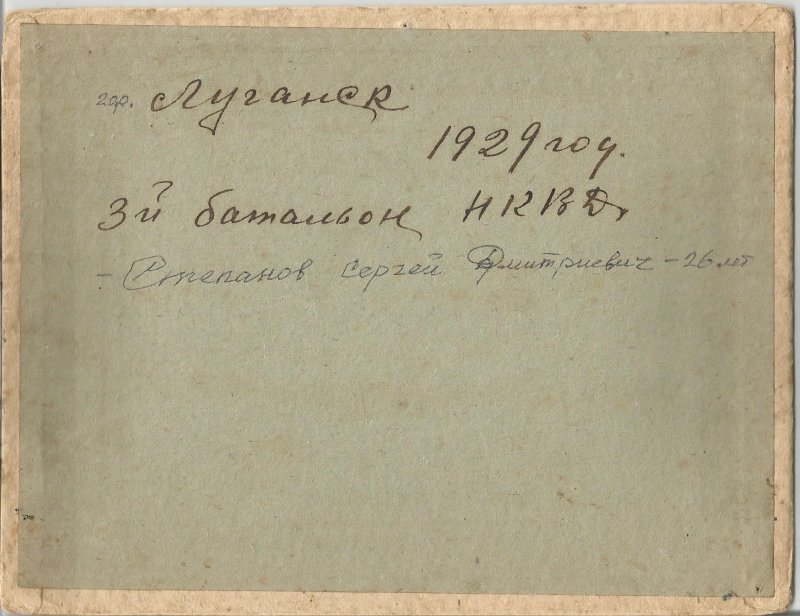 гор. Луганск
1929 году.
3й батальон НКВД
- Степанов Сергей Дмитриевич - 26 лет